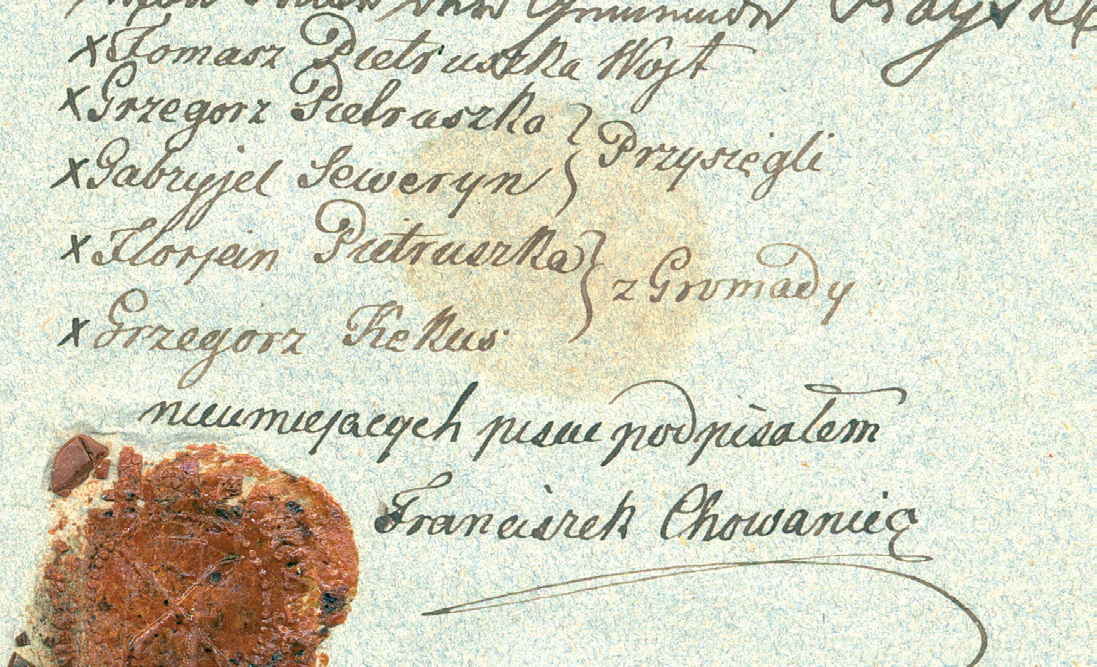 x Tomasz Pietruszka Wojt
x Grzegorz Pietruszka
x Gabryjel Seweryn } Przysięgli
x Florjan Pietruszka
x Grzegorz Kekus } z Gromady
nieumiejących pisac podpisałem
Franciszek Chowaniec